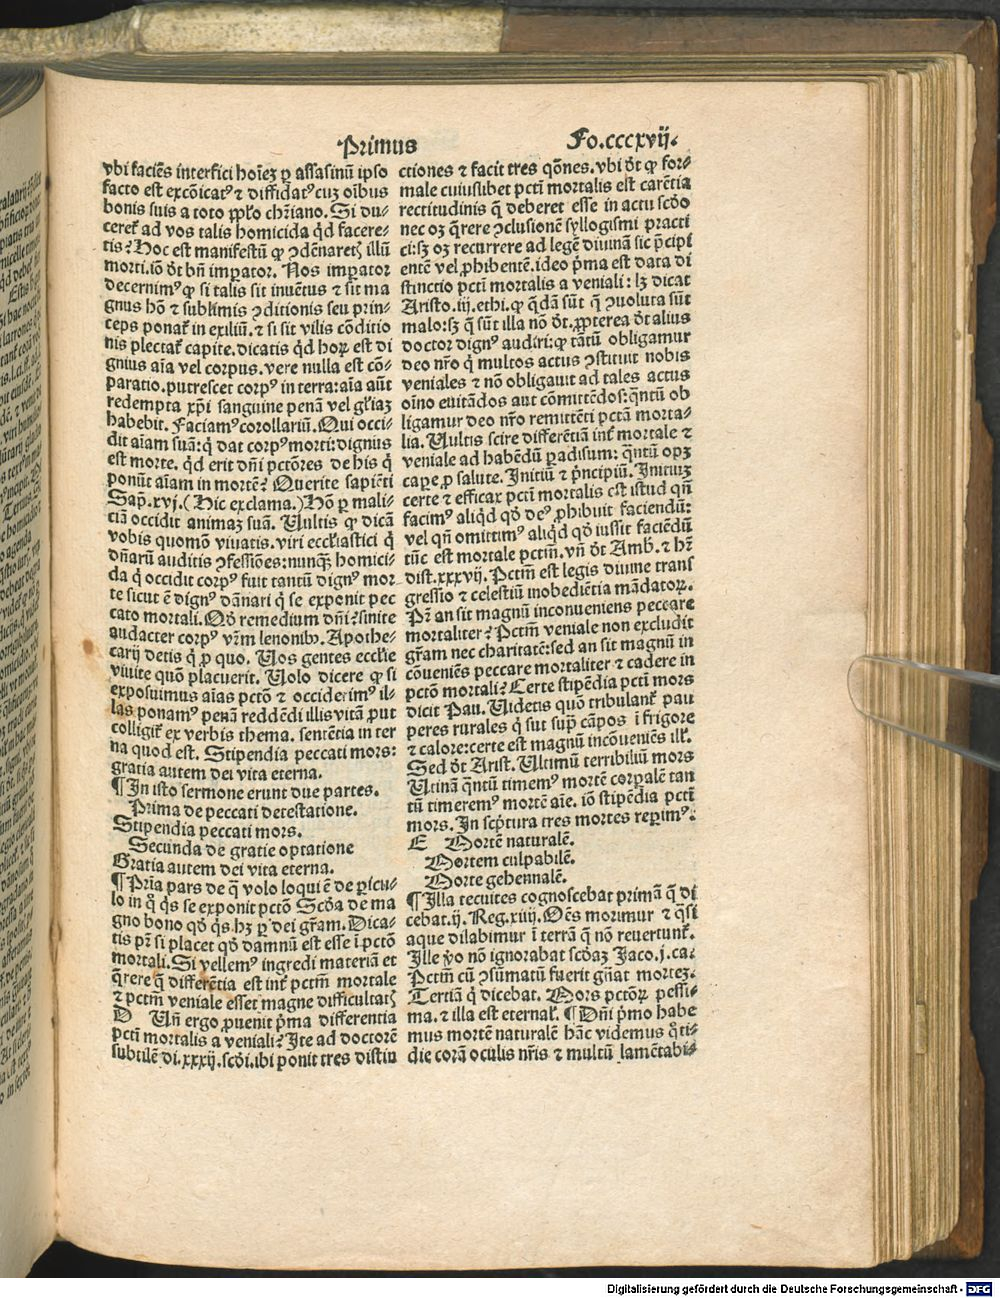 Primus
Fo.cccxvij.
vbi faciẽs interfici hoĩeʒ ꝑ assasinũ ipso
facto est excõicatꝰ ⁊ diffidatꝰ cuʒ oĩbus
bonis suis a toto ppl̃o chꝛ̃iano. Si du-
ceret̃ ad vos talis homicida qd̓ facere-
tis? Hoc est manifestũ ꝙ ꝯdẽnaretʒ illũ
morti. iõ ðt bñ impator. Nos imperator
decernimꝰ ꝙ si talis sit inuẽtus ⁊ sit ma
gnus hõ ⁊ sublimis ꝯditionis seu prin-
ceps ponat̃ in exiliũ. ⁊ si sit vilis cõditio
nis plectat̃ capite. dicatis qd̓ hoꝝ est di
gnius aĩa vel corpus. vere nulla est cõ-
paratio. putrescet corpꝰ in terra: aĩa aũt
redempta xp̃i sanguine penã vel gl̃iaʒ
habebit. Faciamꝰ corollariũ. Qui occi-
dit aĩam suã: q̓ dat corpꝰ morti: dignius
est morte. qd̓ erit dñi pctõres de his q̓
ponũt aĩam in mortẽ? Querite sapiẽti
Sap̃. xvj. (Hic exclama.) Hõ ꝑ mali-
ciã occidit animaʒ suã. Vultis ꝙ dicã
vobis quomõ viuatis. viri eccl̃iastici q̓
dñarũ auditis ꝯfessiões: nunqʒ homici-
da q̓ occidit corpꝰ fuit tantũ dignꝰ mor
te sicut ẽ dignꝰ dãnari q̓ se exponit pec
cato mortali. Qð remedium dñi? sinite
audacter corpꝰ vr̃m lenonibꝰ. Apothe-
carij detis q̓ ꝓ quo. Vos gentes eccl̃ie
viuite quõ placuerit. Volo dicere ꝙ si
exposuimus aĩas pctõ ⁊ occiderimꝰ il-
las ponamꝰ penã reddẽdi illis vitã ꝓut
colligit̃ ex verbis thema. sentẽtia in ter
na quod est. Stipendia peccati mors:
gratia autem dei vita eterna.
¶ In isto sermone erunt due partes.
Prima de peccati detestatione.
Stipendia peccati mors.
Secunda de gratie optatione
Gratia autem dei vita eterna.
¶ Pr̃ia pars de q̃ volo loqui ẽ de ꝑicu-
lo in q̊ q̓s se exponit pctõ Scð̃a de ma
gno bono qð q̓s hʒ ꝑ dei gr̃am. Dica-
tis pꝛ̃ si placet qð damnũ est esse ĩ pctõ
mortali. Si vellemꝰ ingredi materiã et
q̃rere q̃ differẽtia est int̃ pctm̃ mortale
⁊ pctm̃ veniale esset magne difficultatʒ
D Vñ ergo ꝓuenit pͥma differentia
pcti mortalis a veniali? Ite ad doctorẽ
subtilẽ di. xxxij. scð̓i. ibi ponit tres distin
ctiones ⁊ facit tres qõnes. vbi ðt ꝙ for-
male cuiuslibet pcti mortalis est carẽtia
rectitudinis q̃ deberet esse in actu scð̓o
nec oʒ q̃rere ꝯclusionẽ syllogismi practi
ci: sʒ oʒ recurrere ad legẽ diuinã sic p̃cipi
entẽ vel ꝓhibentẽ. ideo pͥma est data di
stinctio pcti mortalis a veniali: lʒ dicat
Aristo. iij. ethi. ꝙ q̃dã sũt q̃ ꝯuoluta sũt
malo: sʒ q̃ sũt illa nõ ðt. ꝓpterea ðt alius
doctor dignꝰ audiri: ꝙ tãtũ obligamur
deo nr̃o q̓ multos actus ꝯstituit nobis
veniales ⁊ nõ obligauit ad tales actus
oĩno euitãdos aut cõmittẽdos: q̃ntũ ob
ligamur deo nr̃o remittẽti pctã morta-
lia. Vultis scire differẽtiã int̃ mortale ⁊
veniale ad habẽdũ ꝑadisum: q̃ntũ opʒ
cape ꝓ salute. Initiũ ⁊ pͥncipiũ. Initiuʒ
certe ⁊ efficax pcti mortalis est istud qñ
facimꝰ aliqd̓ qð deꝰ ꝓhibuit faciendũ:
vel qñ omittimꝰ aliqd̓ qð iussit faciẽdũ
tũc est mortale pctm̃. vñ ðt Amb̃. ⁊ hr̃
dist. xxxvij. Pctm̃ est legis diuine trans
gressio ⁊ celestiũ inobedĩetia mãdatoꝝ.
Pꝛ̃ an sit magnũ inconueniens peccare
mortaliter? Pctm̃ veniale non excludit
gr̃am nec charitatẽ: sed an sit magnũ in
coueniẽs peccare mortaliter ⁊ cadere in
pctõ mortali? Certe stipẽdia pcti mors
dicit Pau. Videtis quõ tribulant̃ pau
peres rurales q̓ sũt sup̃ cãpos ĩ frigore
⁊ calore: certe est magnũ incõueniẽs ill̃.
Sed ðt Arist. Vltimũ terribiliũ mors
Vtinã q̃ntũ timemꝰ mortẽ corꝑalẽ tan
tũ timeremꝰ mortẽ aĩe. iõ stipẽdia pcti
mors. In scp̃tura tres mortes reperimꝰ.
E Mortẽ naturalẽ.
Mortem culpabilẽ.
Morte gehennalẽ.
¶ Illa tecuites cognoscebat primã q̃ di
cebat. ij. Reg. xiiij. Oẽs morimur ⁊ q̃si
aque dilabimur ĩ terrã q̃ nõ reuertunt̃.
Ille ꝟo nõ ignorabat scð̃aʒ Jaco. j. ca.
Pctm̃ cũ ꝯsũmatũ fuerit gñat morteʒ.
Tertiã q̓ dicebat. Mors pctõꝝ pessi-
ma. ⁊ illa est eternal̃. ¶ Dñi pͥmo habe
mus mortẽ naturalẽ hãc videmus q̃ti-
die corã oculis nr̃is ⁊ multũ lamẽtabi-
Digitalisierung gefördert durch die Deutsche Forschungsgemeinschaft - DFG